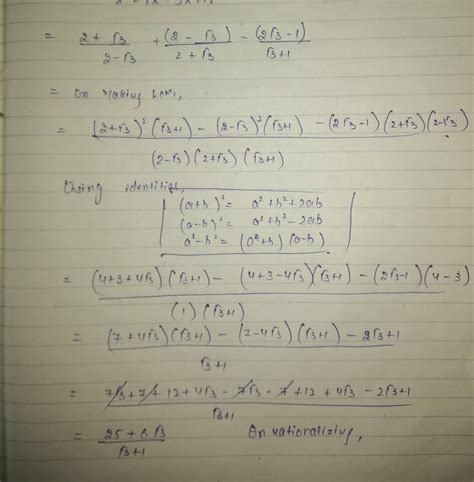 = 2 + √3 / 2 - √3 + (2 - √3) / 2 + √3 - (2√3 - 1) / √3 + 1
= On taking LCM,
= (2+√3)² (√3+1) - (2-√3)² (√3+1) - (2√3-1) (2+√3) (2-√3) / (2-√3) (2+√3) (√3+1)
Using identities,
(a+b)² = a²+b²+2ab
(a-b)² = a²+b²-2ab
a²-b² = (a+b) (a-b)
= (4+3+4√3) (√3+1) - (4+3-4√3) (√3+1) - (2√3-1) (4-3) / (1) (√3+1)
= (7+4√3) (√3+1) - (7-4√3) (√3+1) - 2√3+1 / √3+1
= 7√3+7+12+4√3-7√3-7+12+4√3-2√3+1 / √3+1
= 25+6√3 / √3+1 On rationalizing,